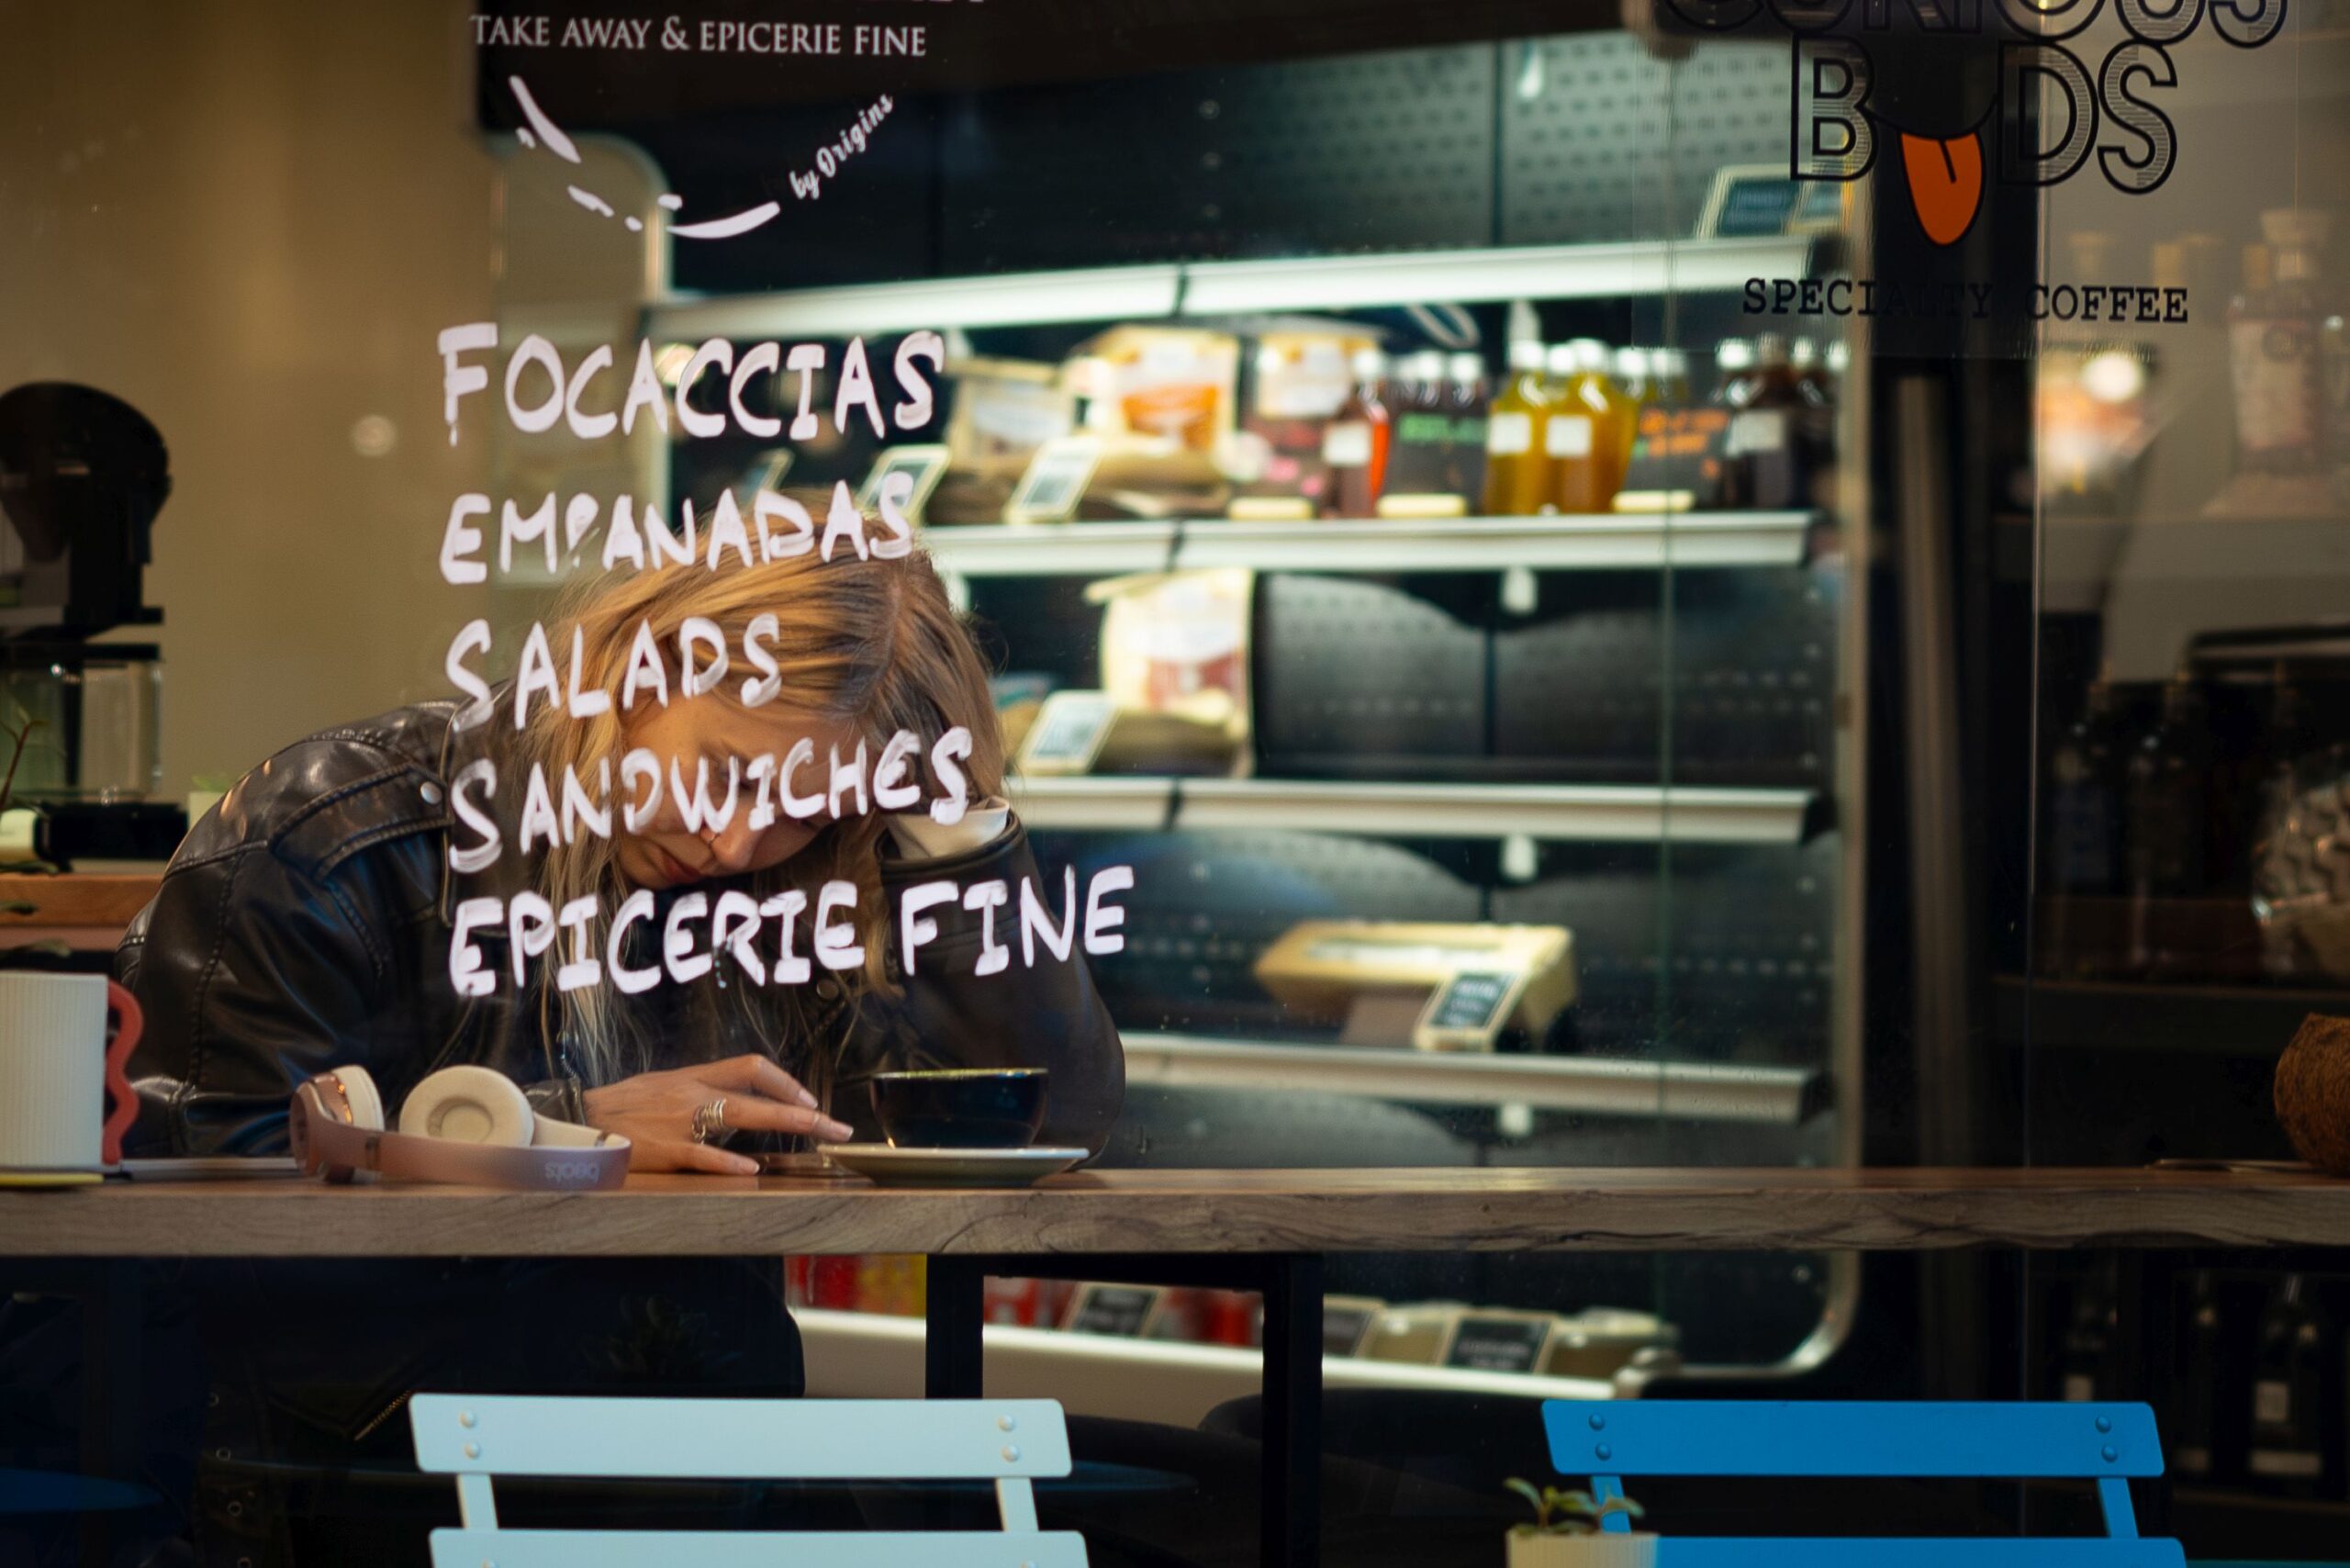 TAKE AWAY & EPICERIE FINE
by Origins
FOCACCIAS
EMPANADAS
SALADS
SANDWICHES
EPICERIE FINE
CURIOUS
BUDS
SPECIALTY COFFEE
beats